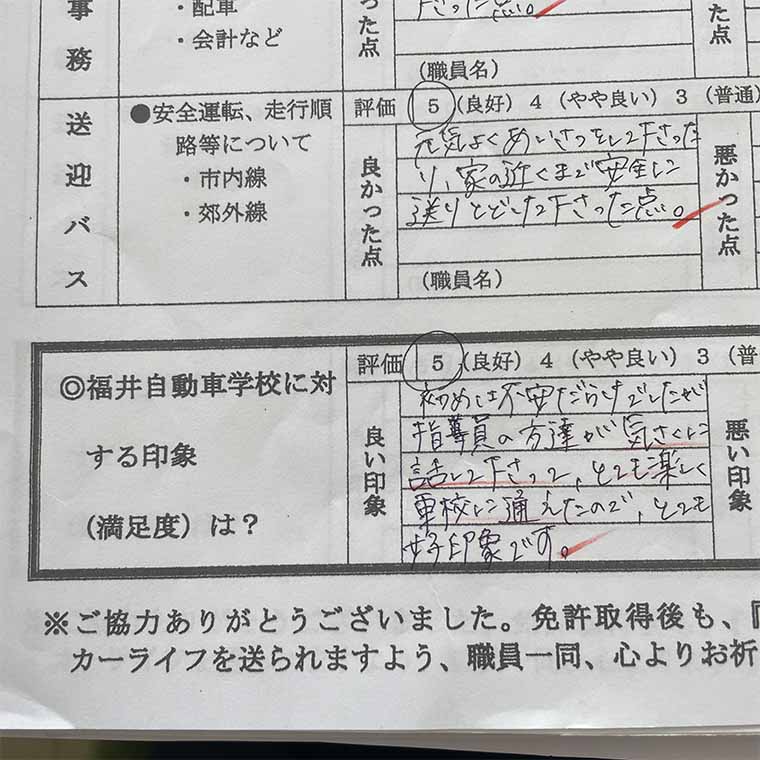 事務
・配車
・会計など
った点
下さった点。
(職員名)
った点
送迎バス
●安全運転、走行順
路等について
・市内線
・郊外線
評価 5 (良好) 4 (やや良い) 3 (普通)
良かった点
元気よくあいさつをして下さった
り、家の近くまで安全に
送りとどけて下さった点。
(職員名)
悪かった点
◎福井自動車学校に対
する印象
(満足度)は？
評価 5 (良好) 4 (やや良い) 3 (普
良い印象
初めは不安だらけでしたが
指導員の方達が気さくに
話して下さって、とても楽しく
車校に通えたので、とても
好印象です。
悪い印象
※ご協力ありがとうございました。免許取得後も、『
カーライフを送られますよう、職員一同、心よりお祈